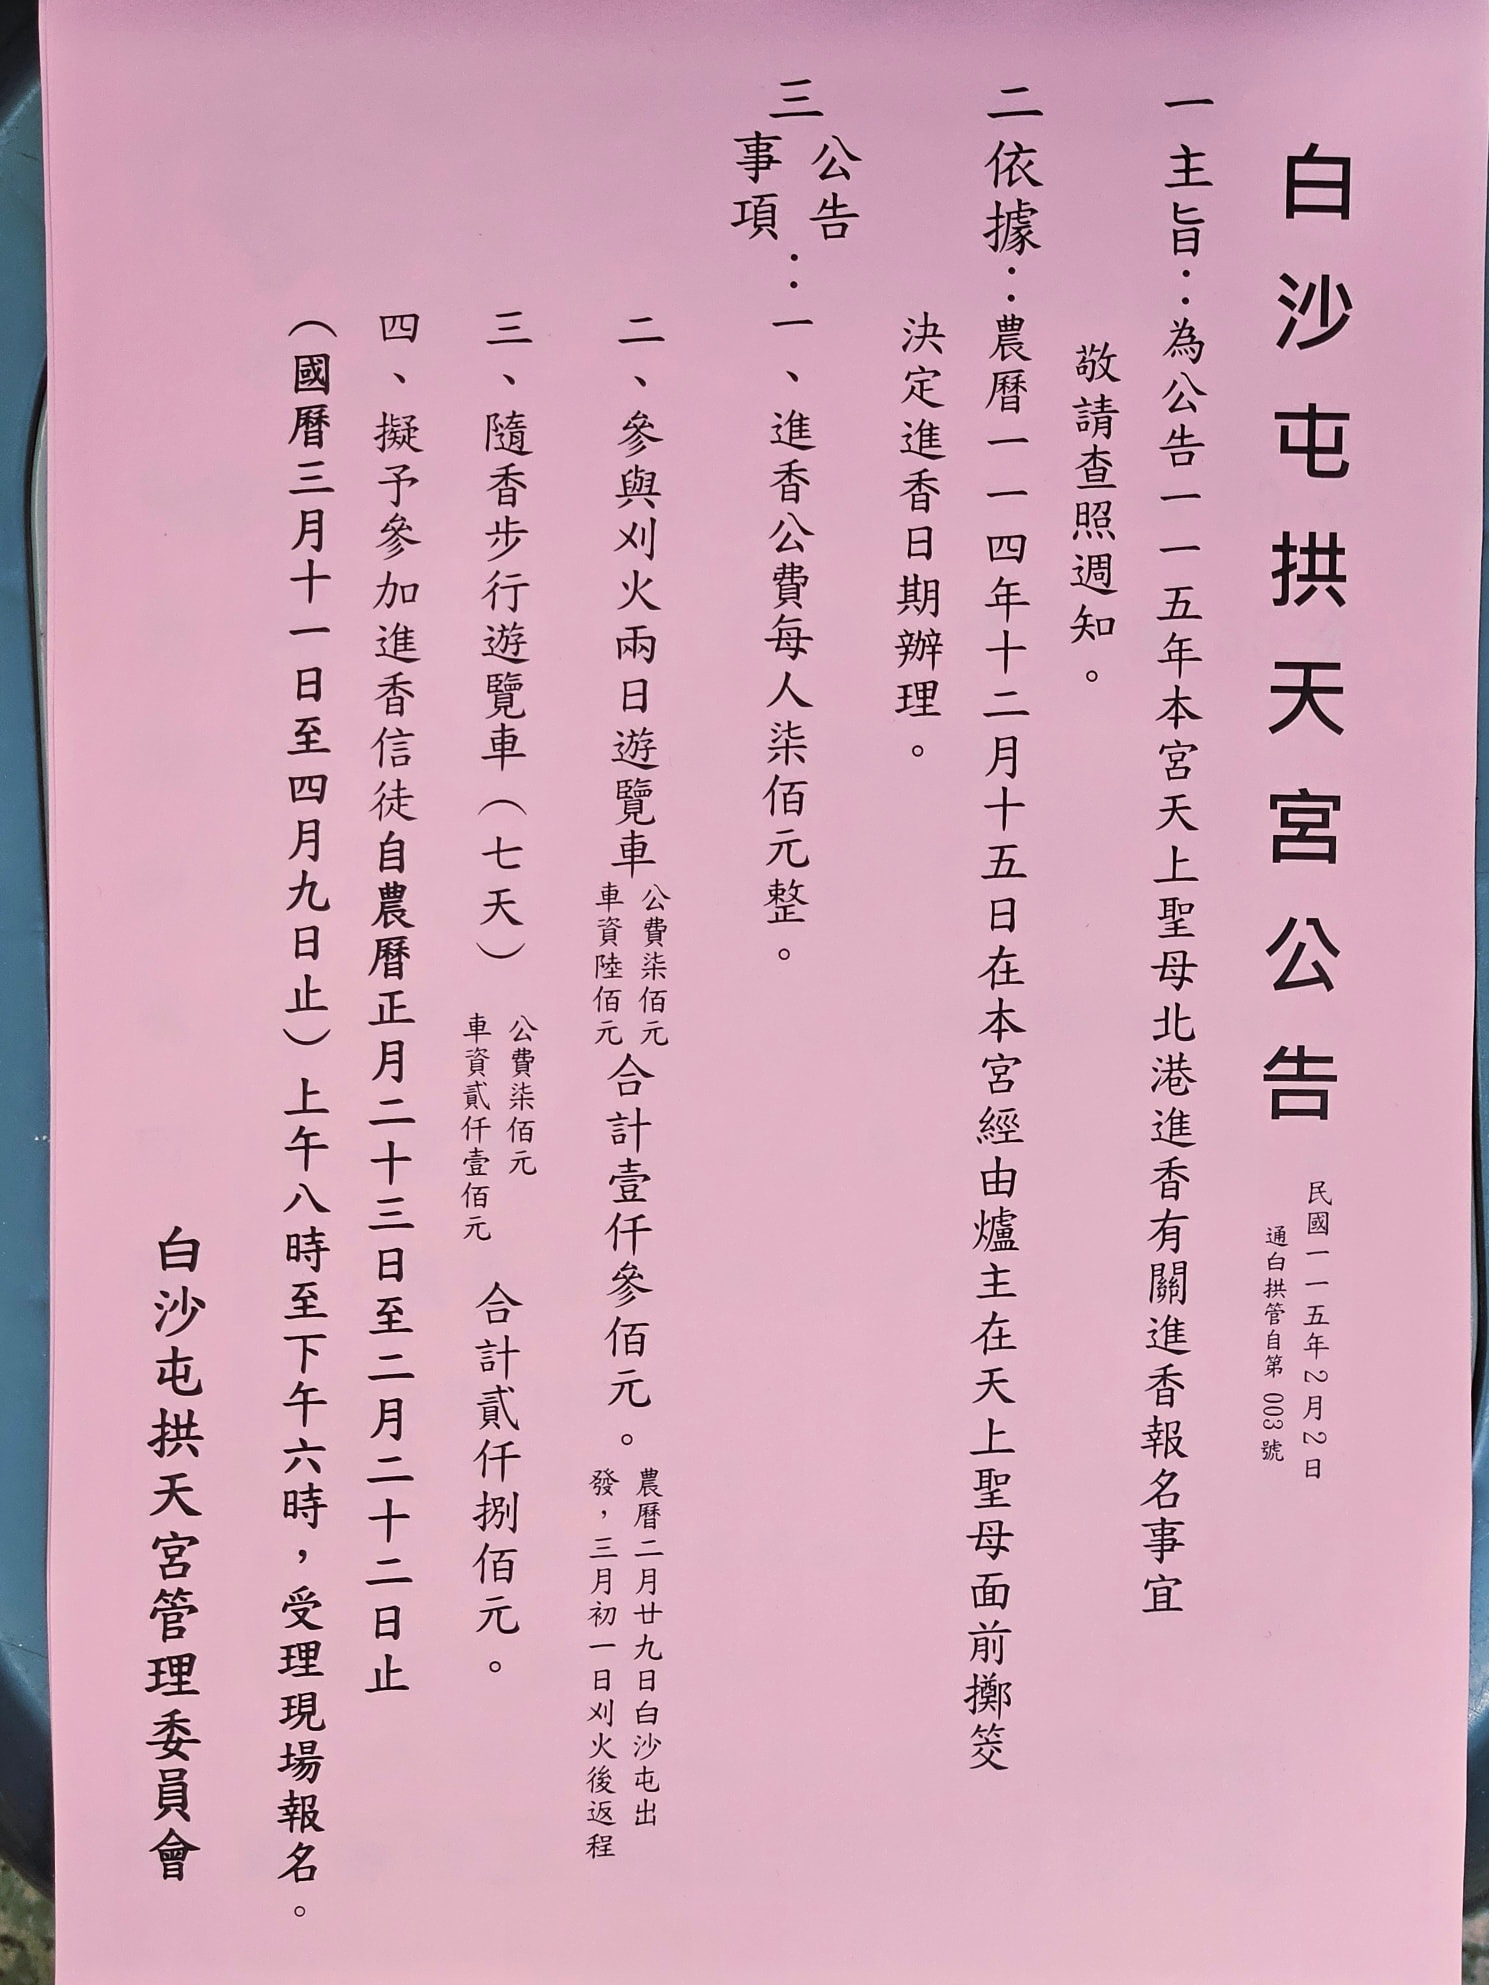 白沙屯拱天宮公告
民國一一五年2月2日
通白拱管自第003號
一主旨：為公告一一五年本宮天上聖母北港進香有關進香報名事宜
敬請查照週知。
二依據：農曆一一四年十二月十五日在本宮經由爐主在天上聖母面前擲筊
決定進香日期辦理。
三公告事項：一、進香公費每人柒佰元整。
二、參與刈火兩日遊覽車公費柒佰元車資陸佰元合計壹仟參佰元。農曆二月廿九日白沙屯出發，三月初一日刈火後返程
三、隨香步行遊覽車（七天）公費柒佰元車資貳仟壹佰元 合計貳仟捌佰元。
四、擬予參加進香信徒自農曆正月二十三日至二月二十二日止
（國曆三月十一日至四月九日止）上午八時至下午六時，受理現場報名。
白沙屯拱天宮管理委員會